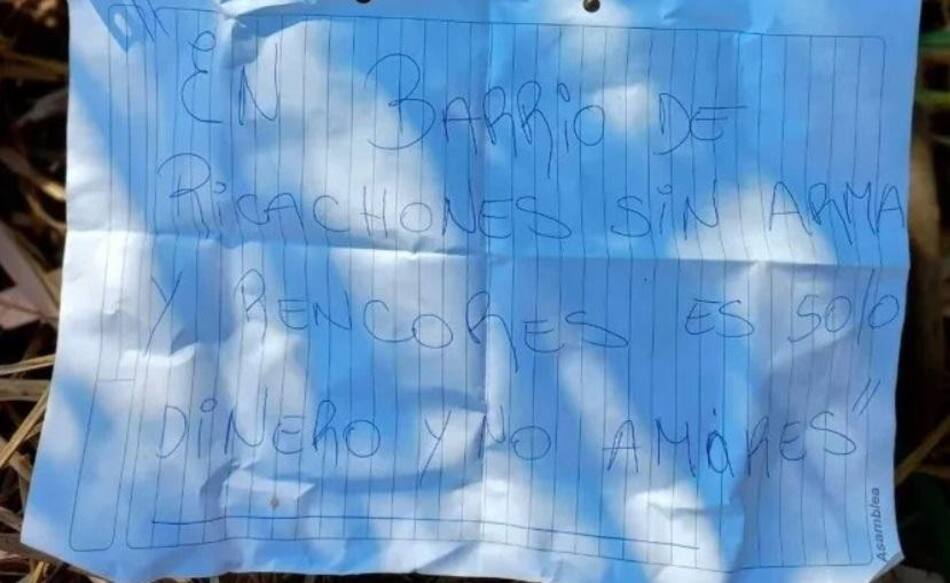 EN BARRIO DE
RICACHONES SIN ARMA
Y RENCORES ES SOlO
DINERO Y NO AMORES"
Asamblea